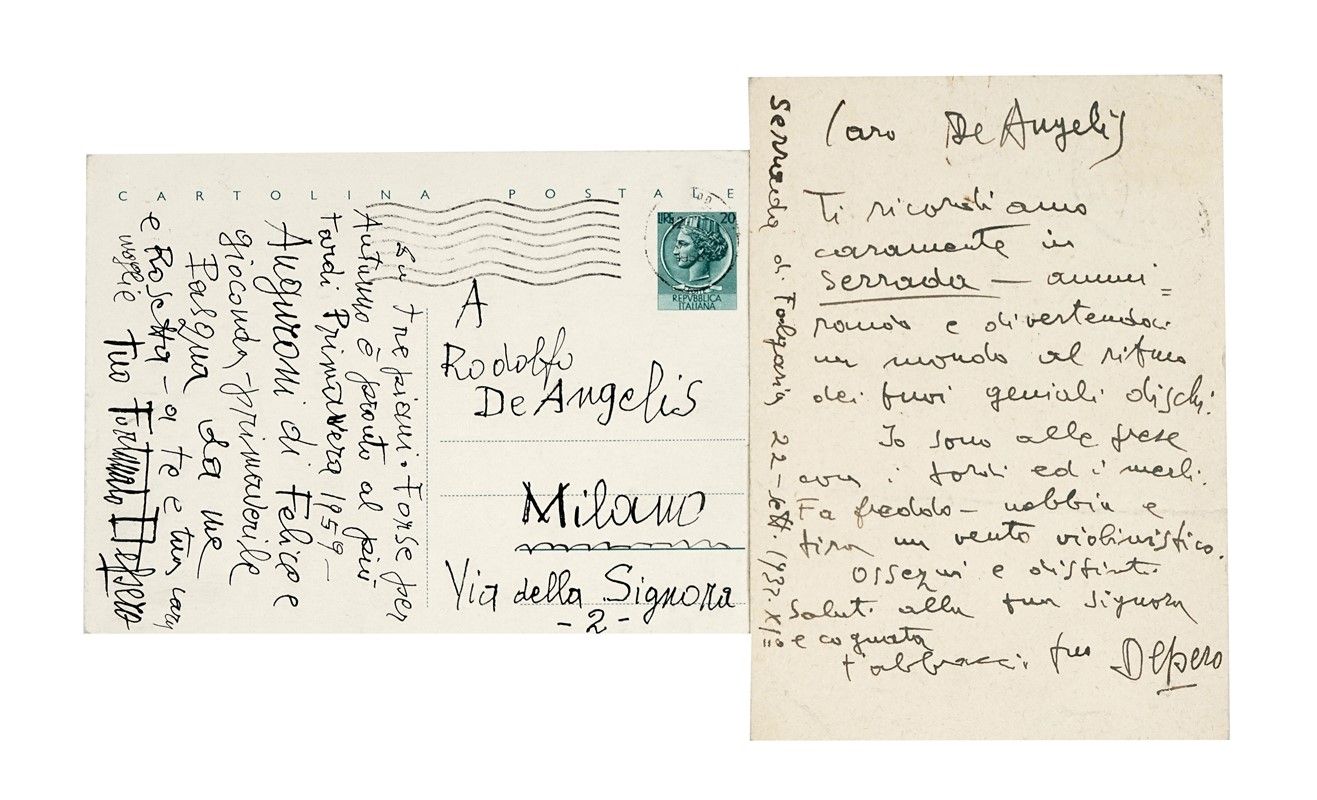 CARTOLINA POSTALE
LIRE 20
REPVBBLICA
ITALIANA
su tre piani. Forse per
Autunno è pronto al più
tardi Primavera 1959 –
Auguroni di Felice e
gioconda – primaverile
Pasqua da me
e Rosetta – a te e tua cara
moglie tuo Fortunato Depero
A
Rodolfo
De Angelis
Milano
Via della Signora
- 2 -
Serrada di Folgaria 22 – sett. 1933. XIº
Caro De Angelis
Ti ricordiamo
caramente in
Serrada – ammi =
rando e divertendoci
un mondo al ritmo
dei tuoi geniali dischi.
Io sono alle prese
con i tordi ed i merli.
Fa freddo – nebbia e
tira un vento violinistico.
Ossequi e distinti
saluti alla tua signora
e cognata
t'abbracci: tuo Depero